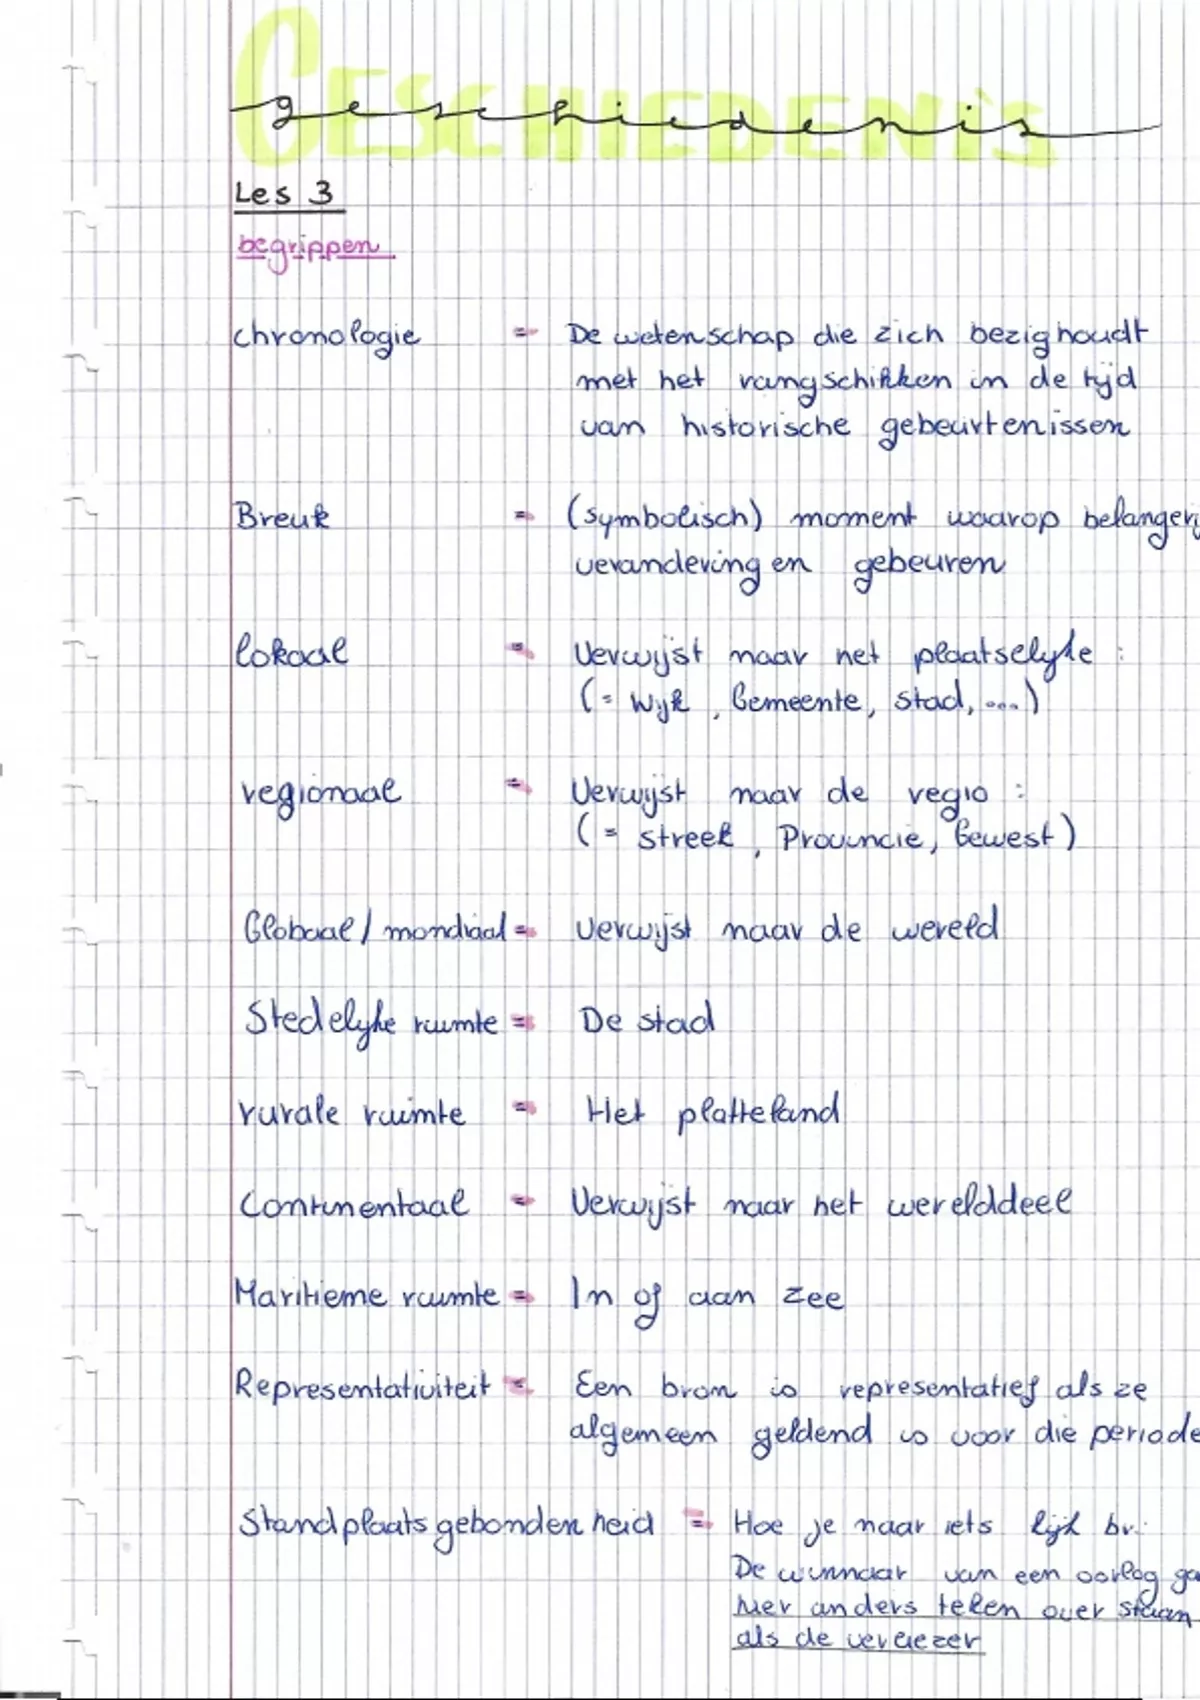 GESCHIEDENIS
geschiedenis
Les 3
begrippen
chronologie = De wetenschap die zich bezighoudt
met het rangschikken in de tijd
van historische gebeurtenissen
Breuk = (symbolisch) moment waarop belangerij
veranderingen gebeuren
lokaal = Verwijst naar het plaatselijke :
(= Wijk, Gemeente, stad, ...)
regionaal = Verwijst naar de regio :
(= streek, Provincie, Gewest)
Globaal / mondiaal = Verwijst naar de wereld
Stedelijke ruimte = De stad
rurale ruimte = Het platteland
Continentaal = Verwijst naar het werelddeel
Maritieme ruimte = In of aan zee
Representativiteit = Een bron is representatief als ze
algemeen geldend is voor die periode
Standplaatsgebondenheid = Hoe je naar iets lijk bv.
De winnaar van een oorlog ga
hier anders teken over staan
als de verliezer